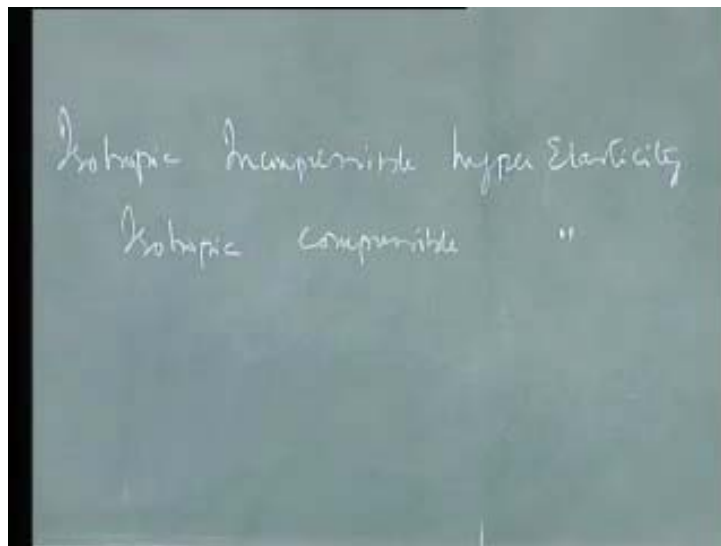 Isotropic Incompressible hyper Elasticity
Isotropic compressible "